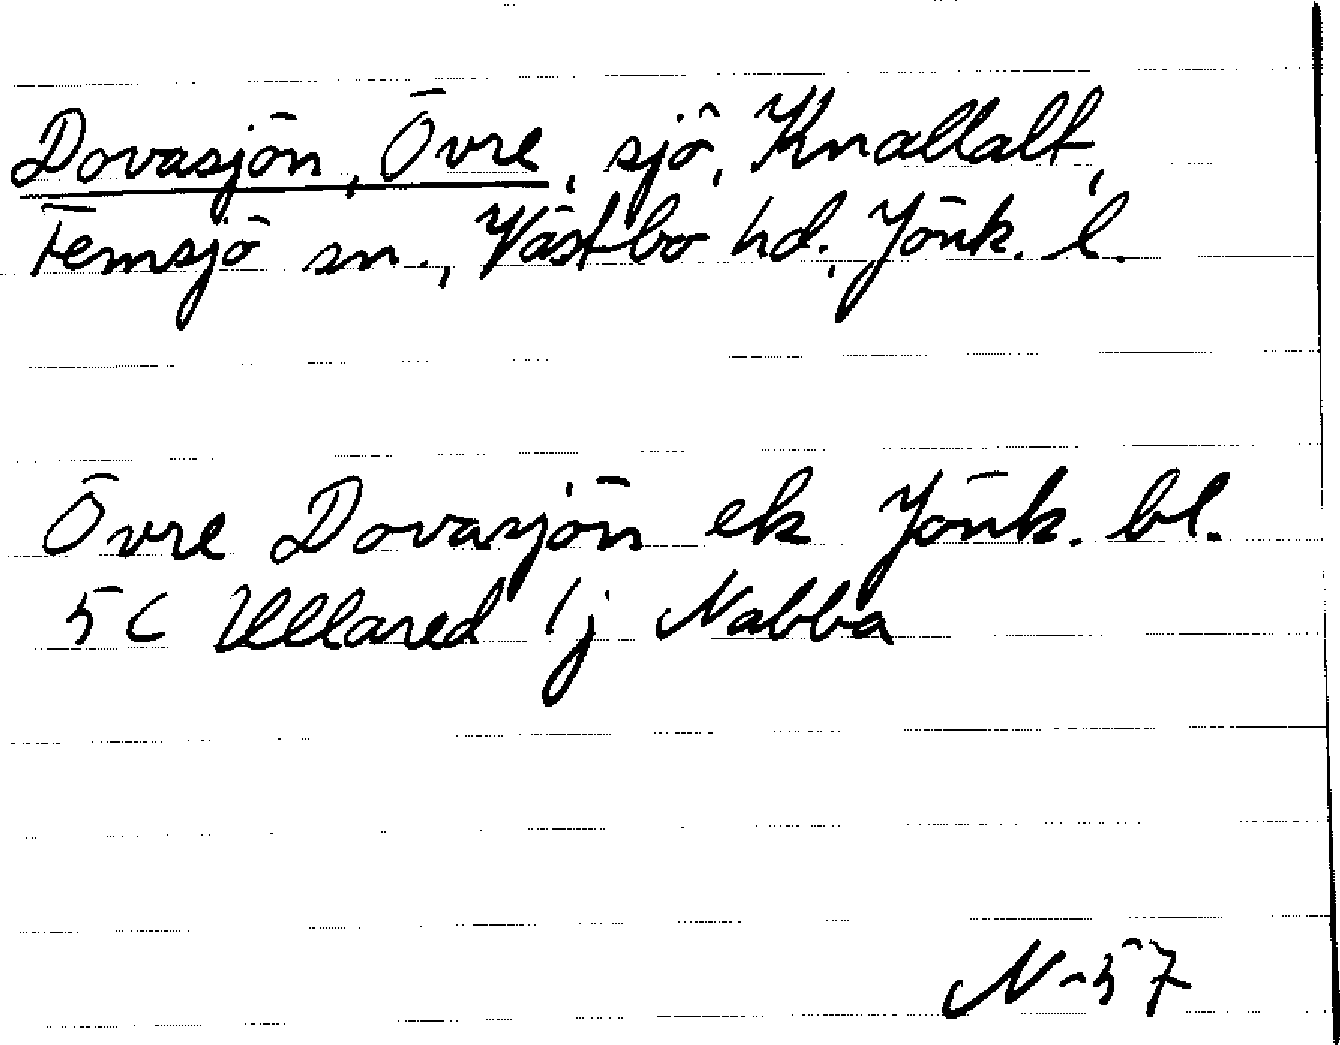 Dovasjön, Övre, sjö, Knallalt,
Femsjö sn., Västbo hd., Jönk. l.
Övre Dovasjön ek Jönk. bl.
5C Ullared 1j Nabba
N-57